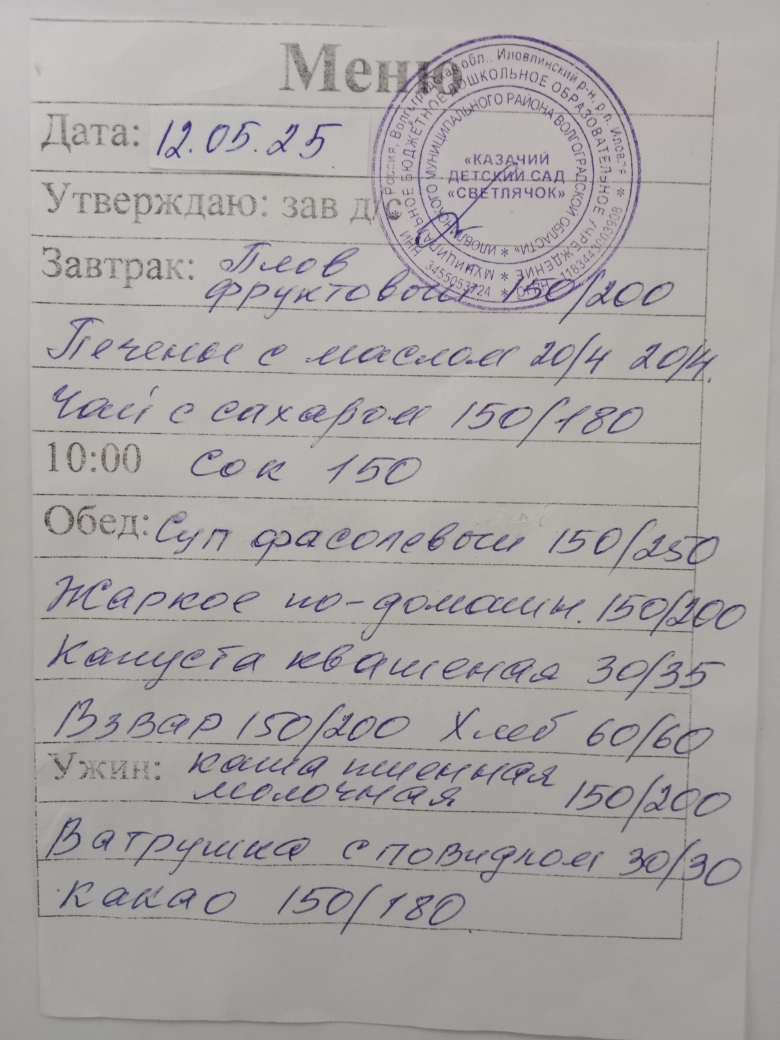 Меню
Дата: 12.05.25
Утверждаю: зав д/с
Россия, Волгоградская обл., Иловлинский р-н, р.п. Иловля
МУНИЦИПАЛЬНОЕ БЮДЖЕТНОЕ ДОШКОЛЬНОЕ ОБРАЗОВАТЕЛЬНОЕ УЧРЕЖДЕНИЕ
ИЛОВЛИНСКОГО МУНИЦИПАЛЬНОГО РАЙОНА ВОЛГОГРАДСКОЙ ОБЛАСТИ
«КАЗАЧИЙ
ДЕТСКИЙ САД
«СВЕТЛЯЧОК»
ИНН 3455053724 * ОГРН
Завтрак: Плов
фруктовый 150/200
Печенье с маслом 20/4 20/4.
Чай с сахаром 150/180
10:00 Сок 150
Обед: Суп фасолевый 150/250
Жаркое по-домашн. 150/200
Капуста квашеная 30/35
Взвар 150/200 Хлеб 60/60
Ужин: каша пшенная
молочная 150/200
Ватрушка с повидлом 30/30
какао 150/180